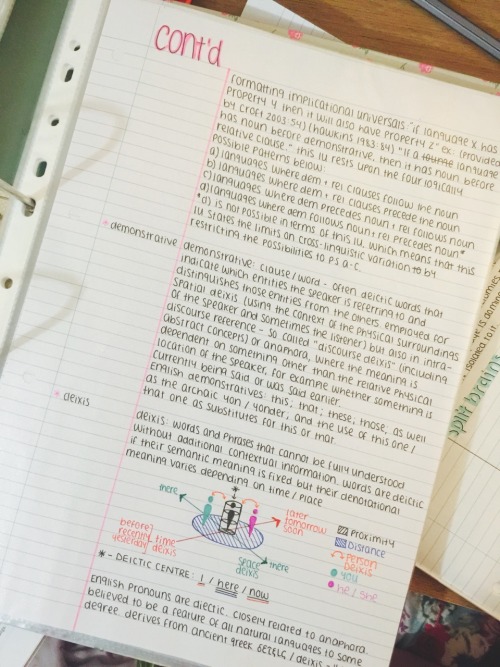 cont'd
Formatting implicational universals: "if language X has
property Y then it will also have property Z" ex: (provided
by Croft 2003:54) (Hawkins 1983:84) "if a language
has noun before demonstrative, then it has noun before
relative clause." this IU rests upon the four logically
possible patterns below:
a) languages where dem + rel clauses follow the noun
b) languages where dem + rel clauses precede the noun
c) languages where dem precedes noun + rel follows noun
d) languages where dem follows noun + rel precedes noun*
*d) is not possible in terms of this IU, which means that this
IU states the limits on cross-linguistic variation by
restricting the possibilities to ps a-c.
* demonstrative
demonstrative: clause/word - often deictic words that
indicate which entities the speaker is referring to and
distinguishes those entities from the others. employed for
spatial deixis (using the context of the physical surroundings
of the speaker and sometimes the listener) but also in intra-
discourse reference - so called "discourse deixis" (including
abstract concepts) or anaphora, where the meaning is
dependent on something other than the relative physical
location of the speaker, for example whether something is
currently being said or was said earlier.
English demonstratives: this; that; these; those, as well
as the archaic yon/yonder, and the use of this one/
that one as substitutes for this or that.
* deixis
deixis: words and phrases that cannot be fully understood
without additional contextual information. words are deictic
if their semantic meaning is fixed but their denotational
meaning varies depending on time/place
there
later
tomorrow
soon
before
recently
yesterday
time
deixis
space
deixis
there
proximity
distance
person
deixis
you
he/she
* - DEICTIC CENTRE: I / here / now
English pronouns are diectic. closely related to anaphora.
believed to be a feature of all natural languages to some
degree. derives from ancient greek δεῖξις / deixis -
split brain